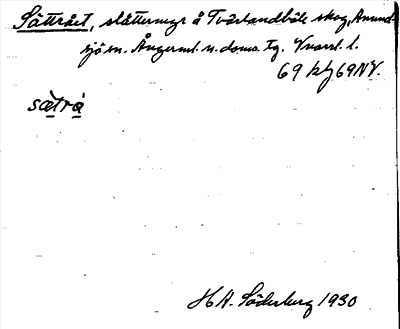 Sätträet, slåttermyr å Tvärlandböle skog, Anund-
sjö sn. Ångerml. n. doms. tg. Kvarnl. l.
69 kbl 69NV.
sætrá
H A. Söderberg 1930